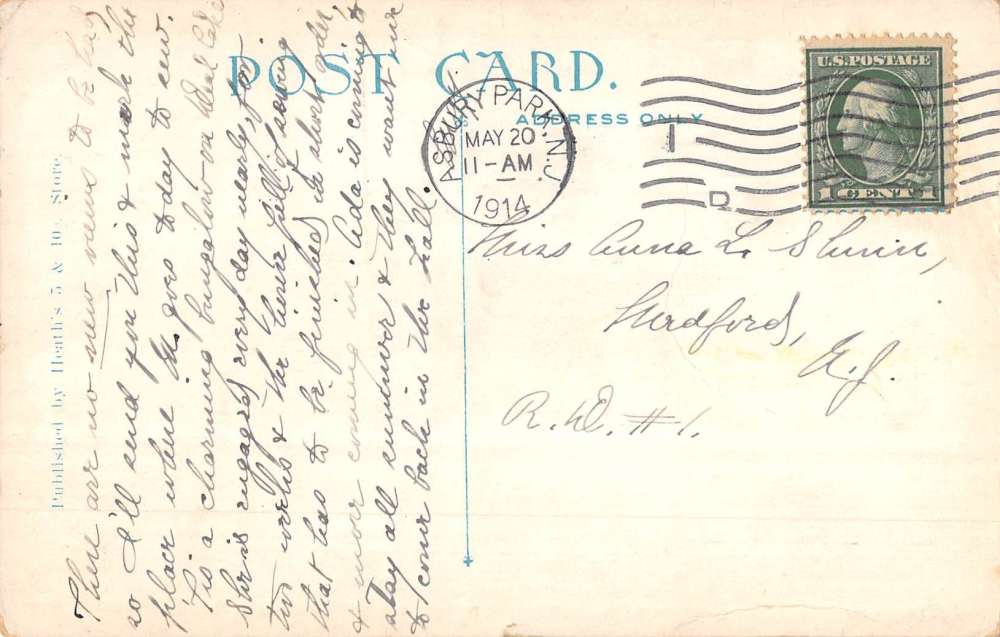 POST CARD.
ADDRESS ONLY
ASBURY PARK, N.J.
MAY 20
11-AM
1914
D
U.S. POSTAGE
1 CENT 1
Miss Anna L.
Medford,
N.J.
R.D. #1.
There are no new views to be had
so I'll send you this & mark the
place where M goes today to sew.
Tis a charming bungalow on Deal
She is engaged every day nearly, for
two weeks & the here full of sewing
that has to be finished in short order,
& more coming in. Ada is coming to
stay all summer & they want me
to come back in the fall.
Published by Heath's 5 & 10c. Store.